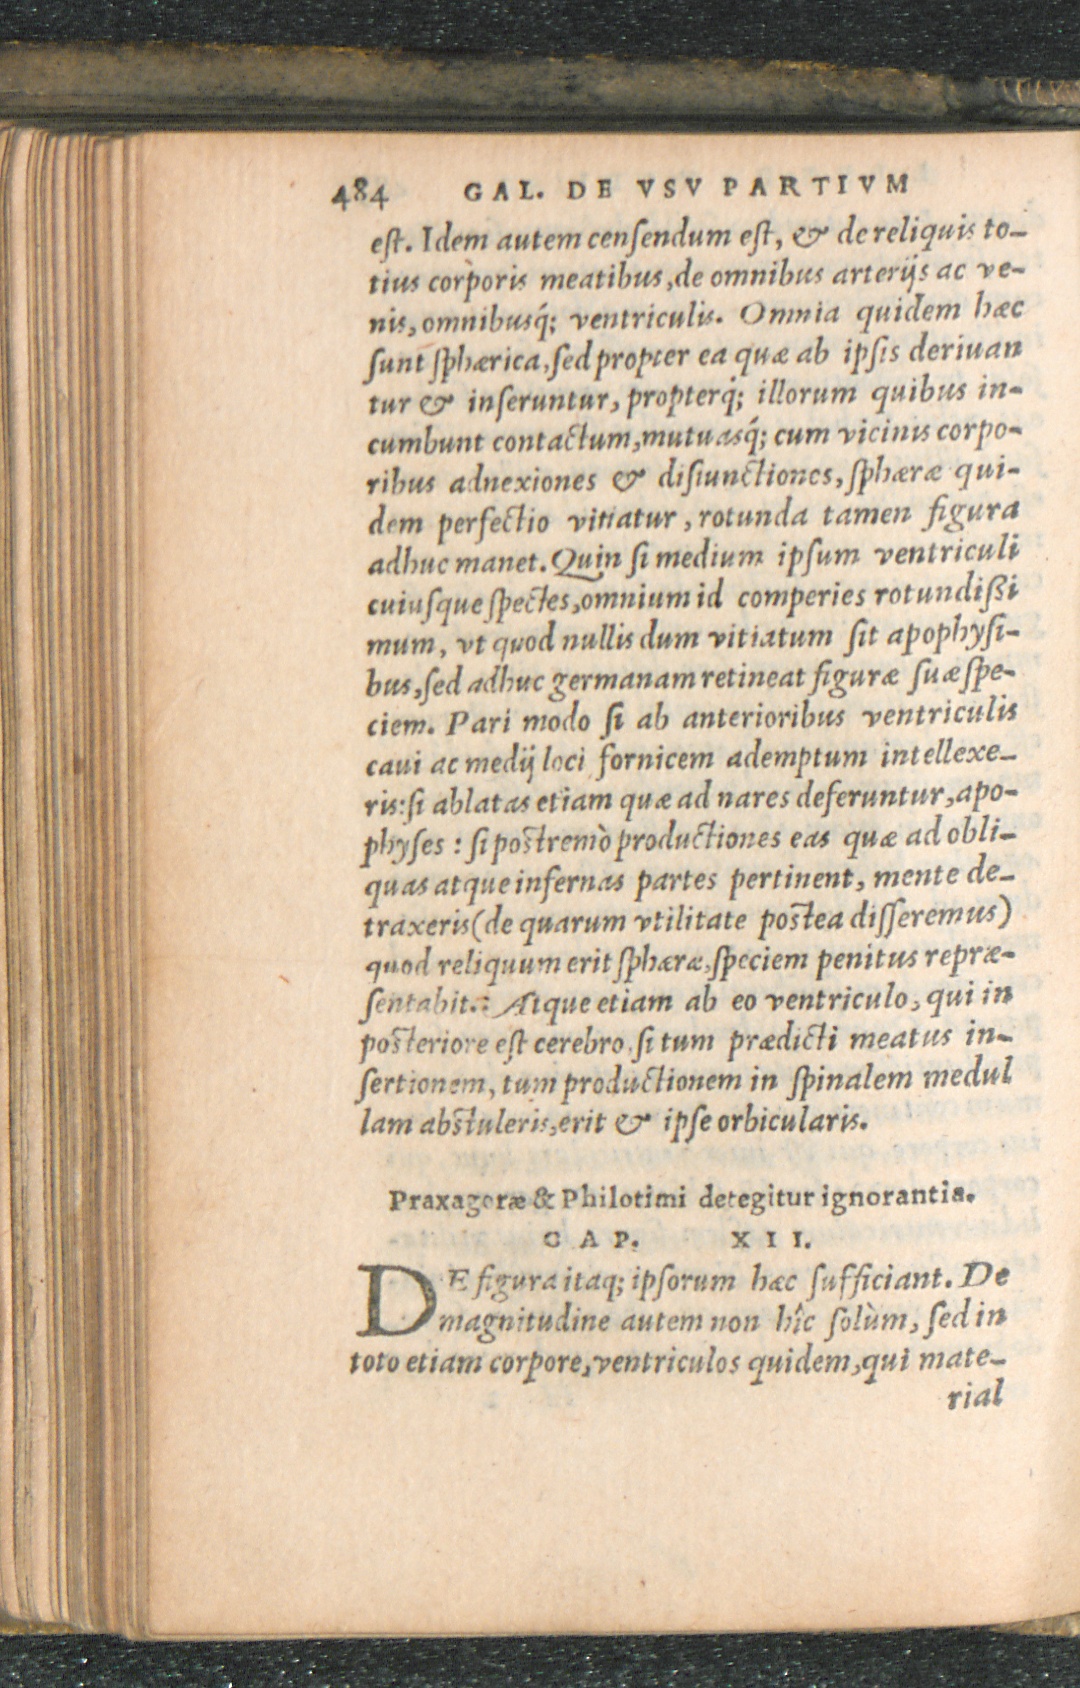 484 GAL. DE VSV PARTIVM
eſt. Idem autem cenſendum eſt, & de reliquis to-
tius corporis meatibus, de omnibus arterijs ac ve-
nis, omnibusq́; ventriculis. Omnia quidem hæc
ſunt ſphærica, ſed propter ea quæ ab ipſis deriuan
tur & inſeruntur, propterq́; illorum quibus in-
cumbunt contactum, mutuasq́; cum vicinis corpo-
ribus adnexiones & diſiunctiones, ſphæræ qui-
dem perfectio vitiatur, rotunda tamen figura
adhuc manet. Quin ſi medium ipſum ventriculi
cuiuſque ſpectes, omnium id comperies rotundißi
mum, vt quod nullis dum vitiatum ſit apophyſi-
bus, ſed adhuc germanam retineat figuræ ſuæ ſpe-
ciem. Pari modo ſi ab anterioribus ventriculis
caui ac medij loci fornicem ademptum intellexe-
ris: ſi ablatas etiam quæ ad nares deferuntur, apo-
phyſes : ſi poſtremò productiones eas quæ ad obli-
quas atque infernas partes pertinent, mente de-
traxeris (de quarum vtilitate poſtea diſſeremus)
quod reliquum erit ſphæræ, ſpeciem penitus repræ-
ſentabit.: Atque etiam ab eo ventriculo, qui in
poſteriore eſt cerebro, ſi tum prædicti meatus in-
ſertionem, tum productionem in ſpinalem medul
lam abſtuleris, erit & ipſe orbicularis.
Praxagoræ & Philotimi detegitur ignorantia.
CAP. XII.
DE figura itaq; ipſorum hæc ſufficiant. De
magnitudine autem non hîc ſolùm, ſed in
toto etiam corpore, ventriculos quidem, qui mate-
rial